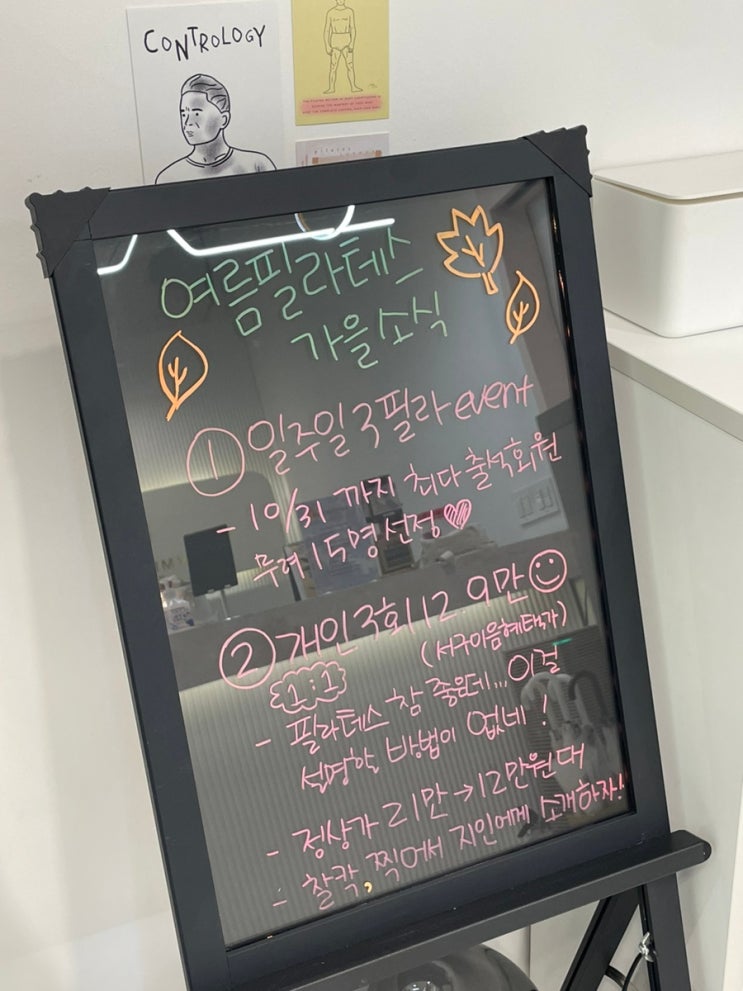 CONTROLOGY
여름필라테스
가을소식
① 일주일3필라 event
- 10/31 까지 최다출석회원
무려 15명 선정♥
② 개인3회 12.9만☺
(서구이음혜택가)
1:1
- 필라테스 참 좋은데... 이걸
설명할 방법이 없네!
- 정상가 21만→12만원대
- 찰칵, 찍어서 지인에게 소개하자!